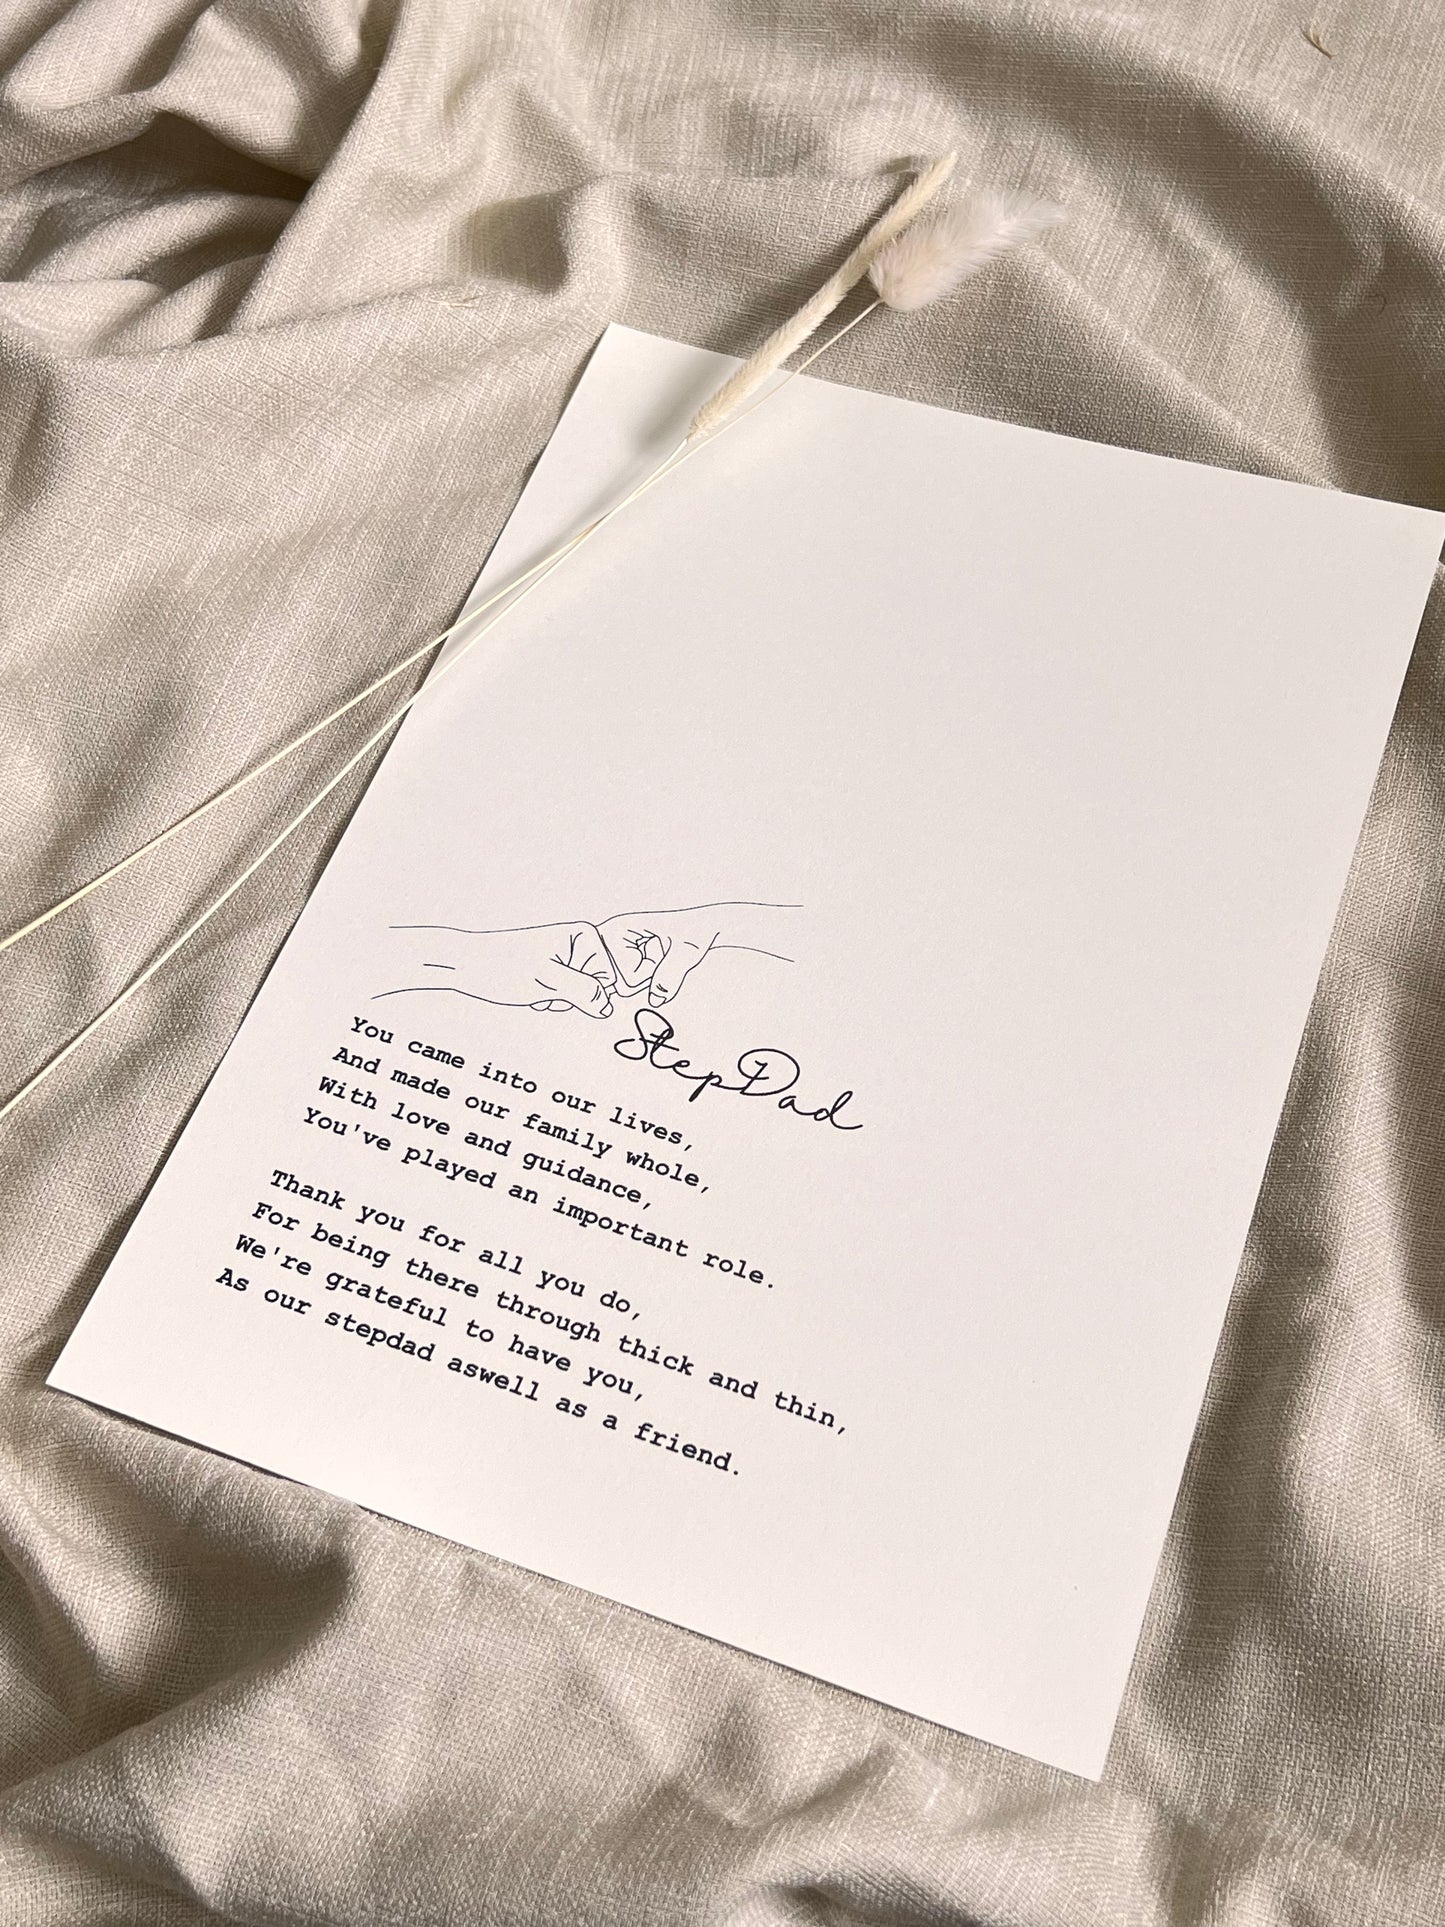 StepDad
You came into our lives,
And made our family whole,
With love and guidance,
You've played an important role.
Thank you for all you do,
For being there through thick and thin,
We're grateful to have you,
As our stepdad aswell as a friend.